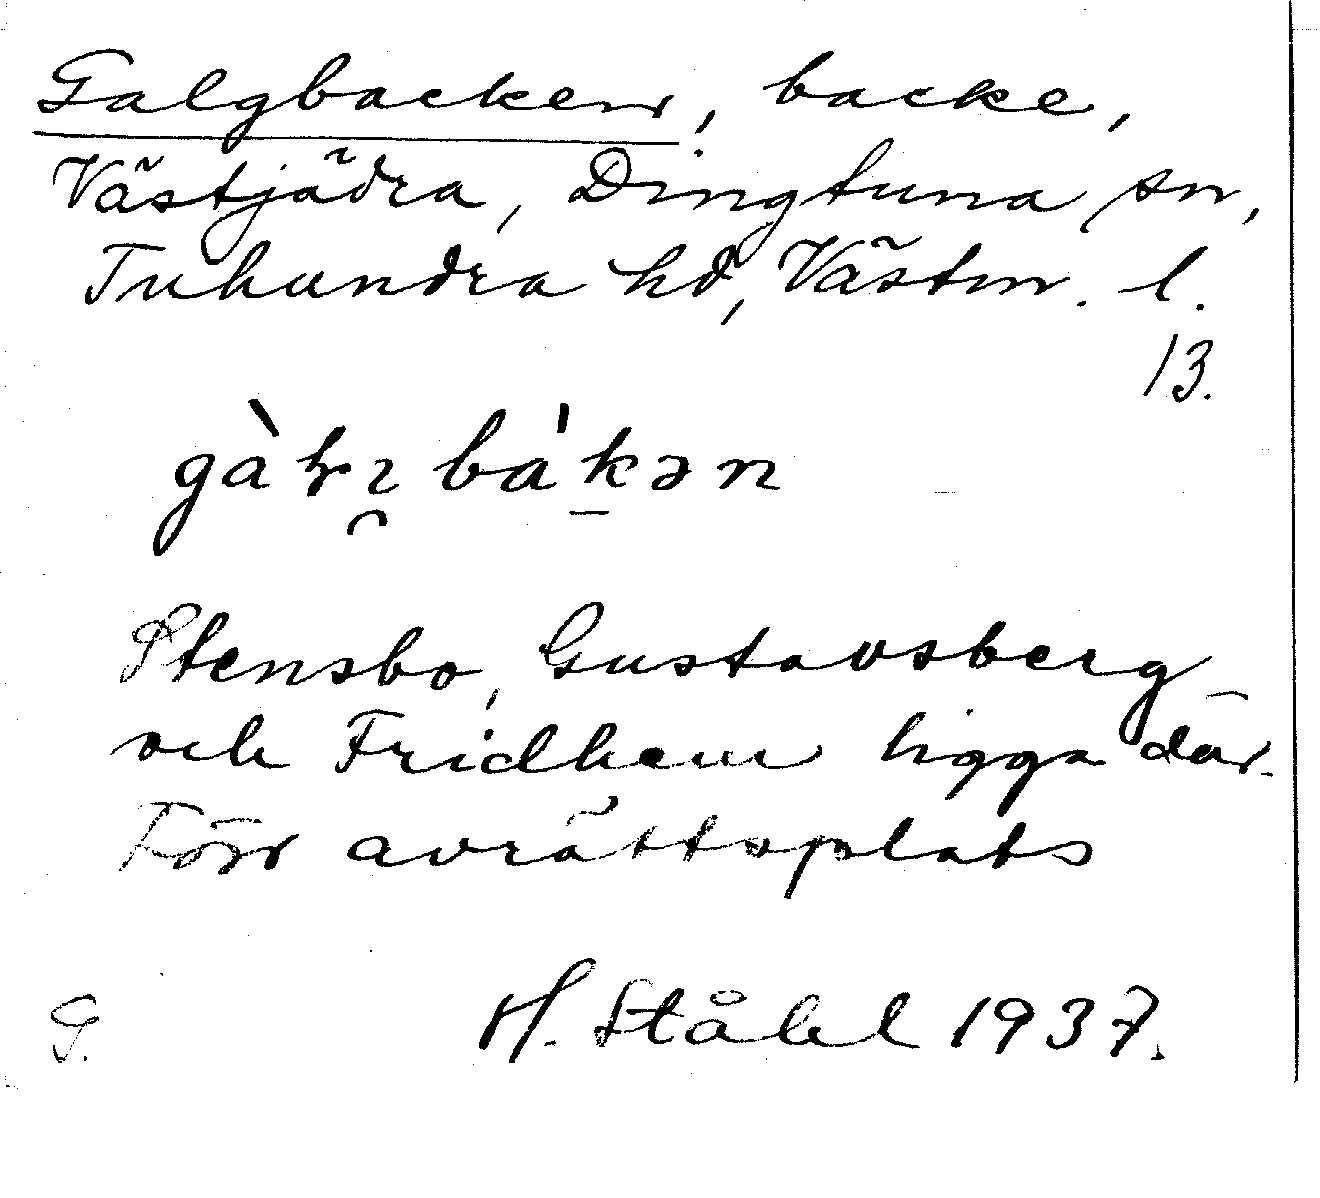 Galgbacken, backe,
Västjädra, Dingtuna sn,
Tuhundra hd, Västm. l.
13.
Stensbo, Gustavsberg
och Fridhem ligga där.
Förr avrättsplats
G. H. Ståhl 1937.